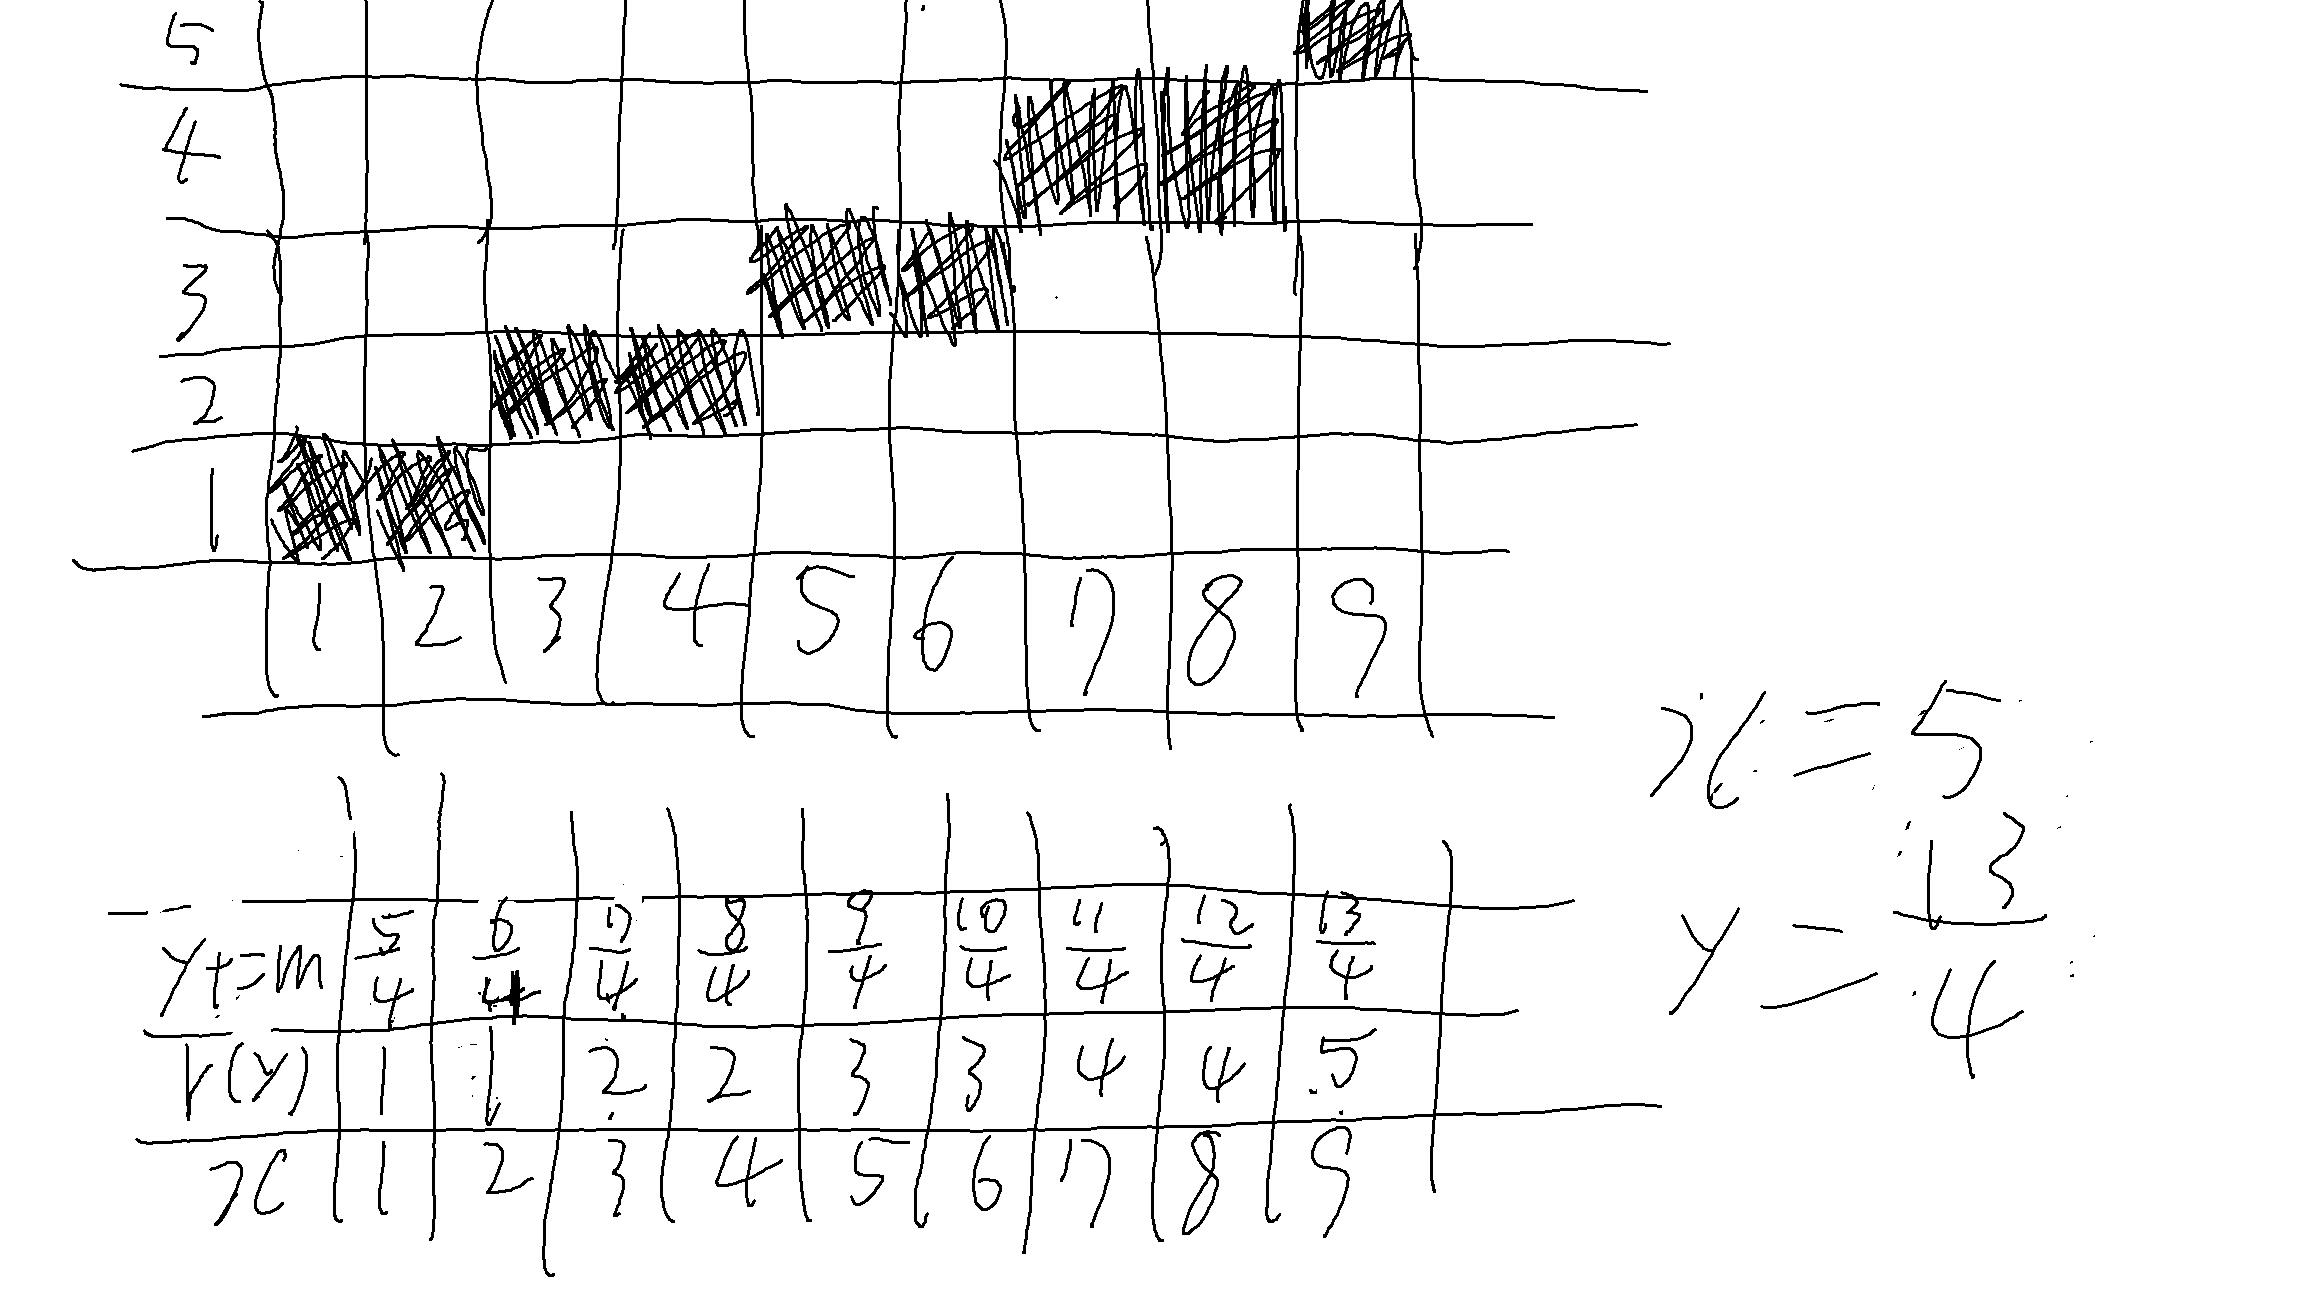 5
4
3
2
1
1 2 3 4 5 6 7 8 9
x = 5
y = 13/4
y+=m 5/4 6/4 7/4 8/4 9/4 10/4 11/4 12/4 13/4
r(y) 1 1 2 2 3 3 4 4 5
x 1 2 3 4 5 6 7 8 9